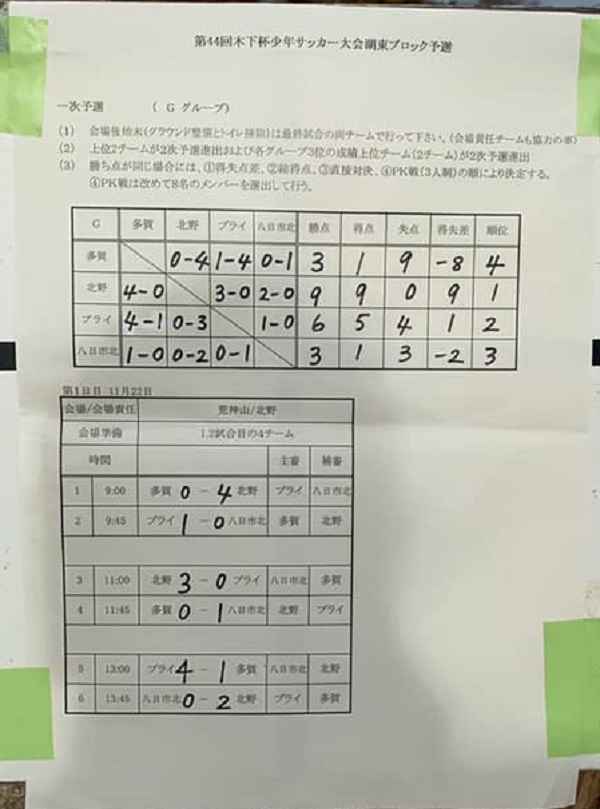 第44回木下杯少年サッカー大会湖東ブロック予選
一次予選 ( G グループ)
(1) 会場後始末(グラウンド整備とトイレ掃除)は最終試合の両チームで行って下さい。(会場責任チームも協力の事)
(2) 上位2チームが2次予選進出および各グループ3位の成績上位チーム(2チーム)が2次予選進出
(3) 勝ち点が同じ場合には、①得失点差、②総得点、③直接対決、④PK戦(3人制)の順により決定する。
④PK戦は改めて8名のメンバーを選出して行う。
G 多賀 北野 プライ 八日市北 勝点 得点 失点 得失差 順位
多賀 0-4 1-4 0-1 3 1 9 -8 4
北野 4-0 3-0 2-0 9 9 0 9 1
プライ 4-1 0-3 1-0 6 5 4 1 2
八日市北 1-0 0-2 0-1 3 1 3 -2 3
第1日目 11月22日
会場/会場責任 荒神山/北野
会場準備 1,2試合目の4チーム
時間 主審 補審
1 9:00 多賀 0 - 4 北野 プライ 八日市北
2 9:45 プライ 1 - 0 八日市北 多賀 北野
3 11:00 北野 3 - 0 プライ 八日市北 多賀
4 11:45 多賀 0 - 1 八日市北 北野 プライ
5 13:00 プライ 4 - 1 多賀 八日市北 北野
6 13:45 八日市北 0 - 2 北野 プライ 多賀